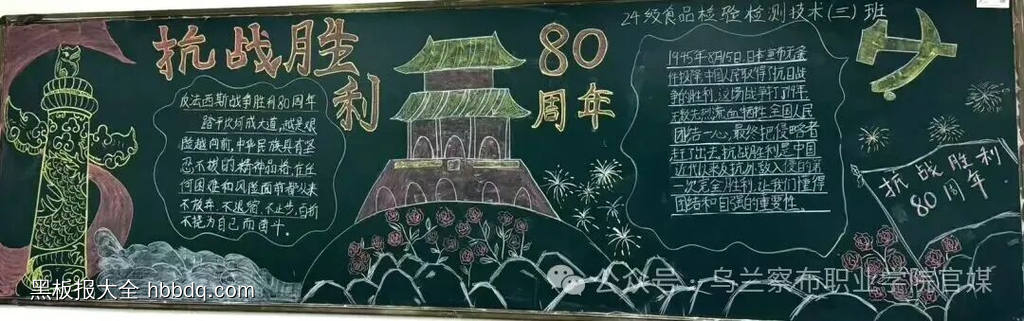 抗战胜利
80周年
24级食品检验检测技术(三)班
反法西斯战争胜利80周年
踏平坎坷成大道,越是艰
险越向前,中华民族具有坚
忍不拔的精神品格,在任
何困难和风险面前都从来
不放弃、不退缩、不止步,百折
不挠为自己而奋斗。
1945年8月15日日本宣布无条
件投降,中国人民取得了抗日战
争的胜利,这场战争打了14年
无数先烈流血牺牲,全国人民
团结一心,最终把侵略者
赶了出去,抗战胜利是中国
近代以来反抗外敌入侵的第
一次完全胜利,让我们懂得
团结和自强的重要性。
抗战胜利
80周年
黑板报大全 hbbdq.com
公众号·乌兰察布职业学院官媒